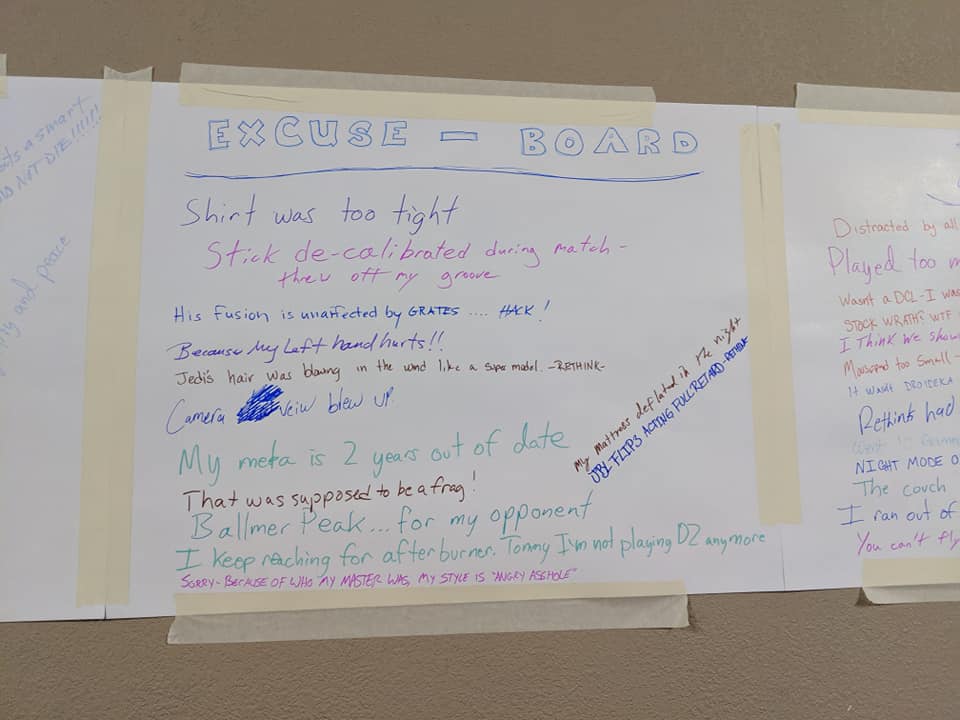 NOT DIE!!!!!!
and peace
EXCUSE - BOARD
Shirt was too tight
Stick de-calibrated during match -
threw off my groove
His Fusion is unaffected by GRATES .... HACK!
Because My Left hand hurts!!
Jedi's hair was blowing in the wind like a super model. -RETHINK-
Camera veiw blew up.
My meta is 2 years out of date
That was supposed to be a frag!
Ballmer Peak... for my opponent
I keep reaching for afterburner. Tommy I'm not playing D2 anymore
SORRY - BECAUSE OF WHO MY MASTER WAS, MY STYLE IS "ANGRY ASSHOLE"
My mattress deflated in the night
JBL FLIP3 ACTING FULL RETARD -RETHINK
Distracted by all
Played too m
Wasnt a DCL - I was
STOCK WRATH? WTF
I Think we show
Mousepad too Small -
It wasnt DROIDEKA
Rethink had
NIGHT MODE O
The couch
I ran out of
You can't fly